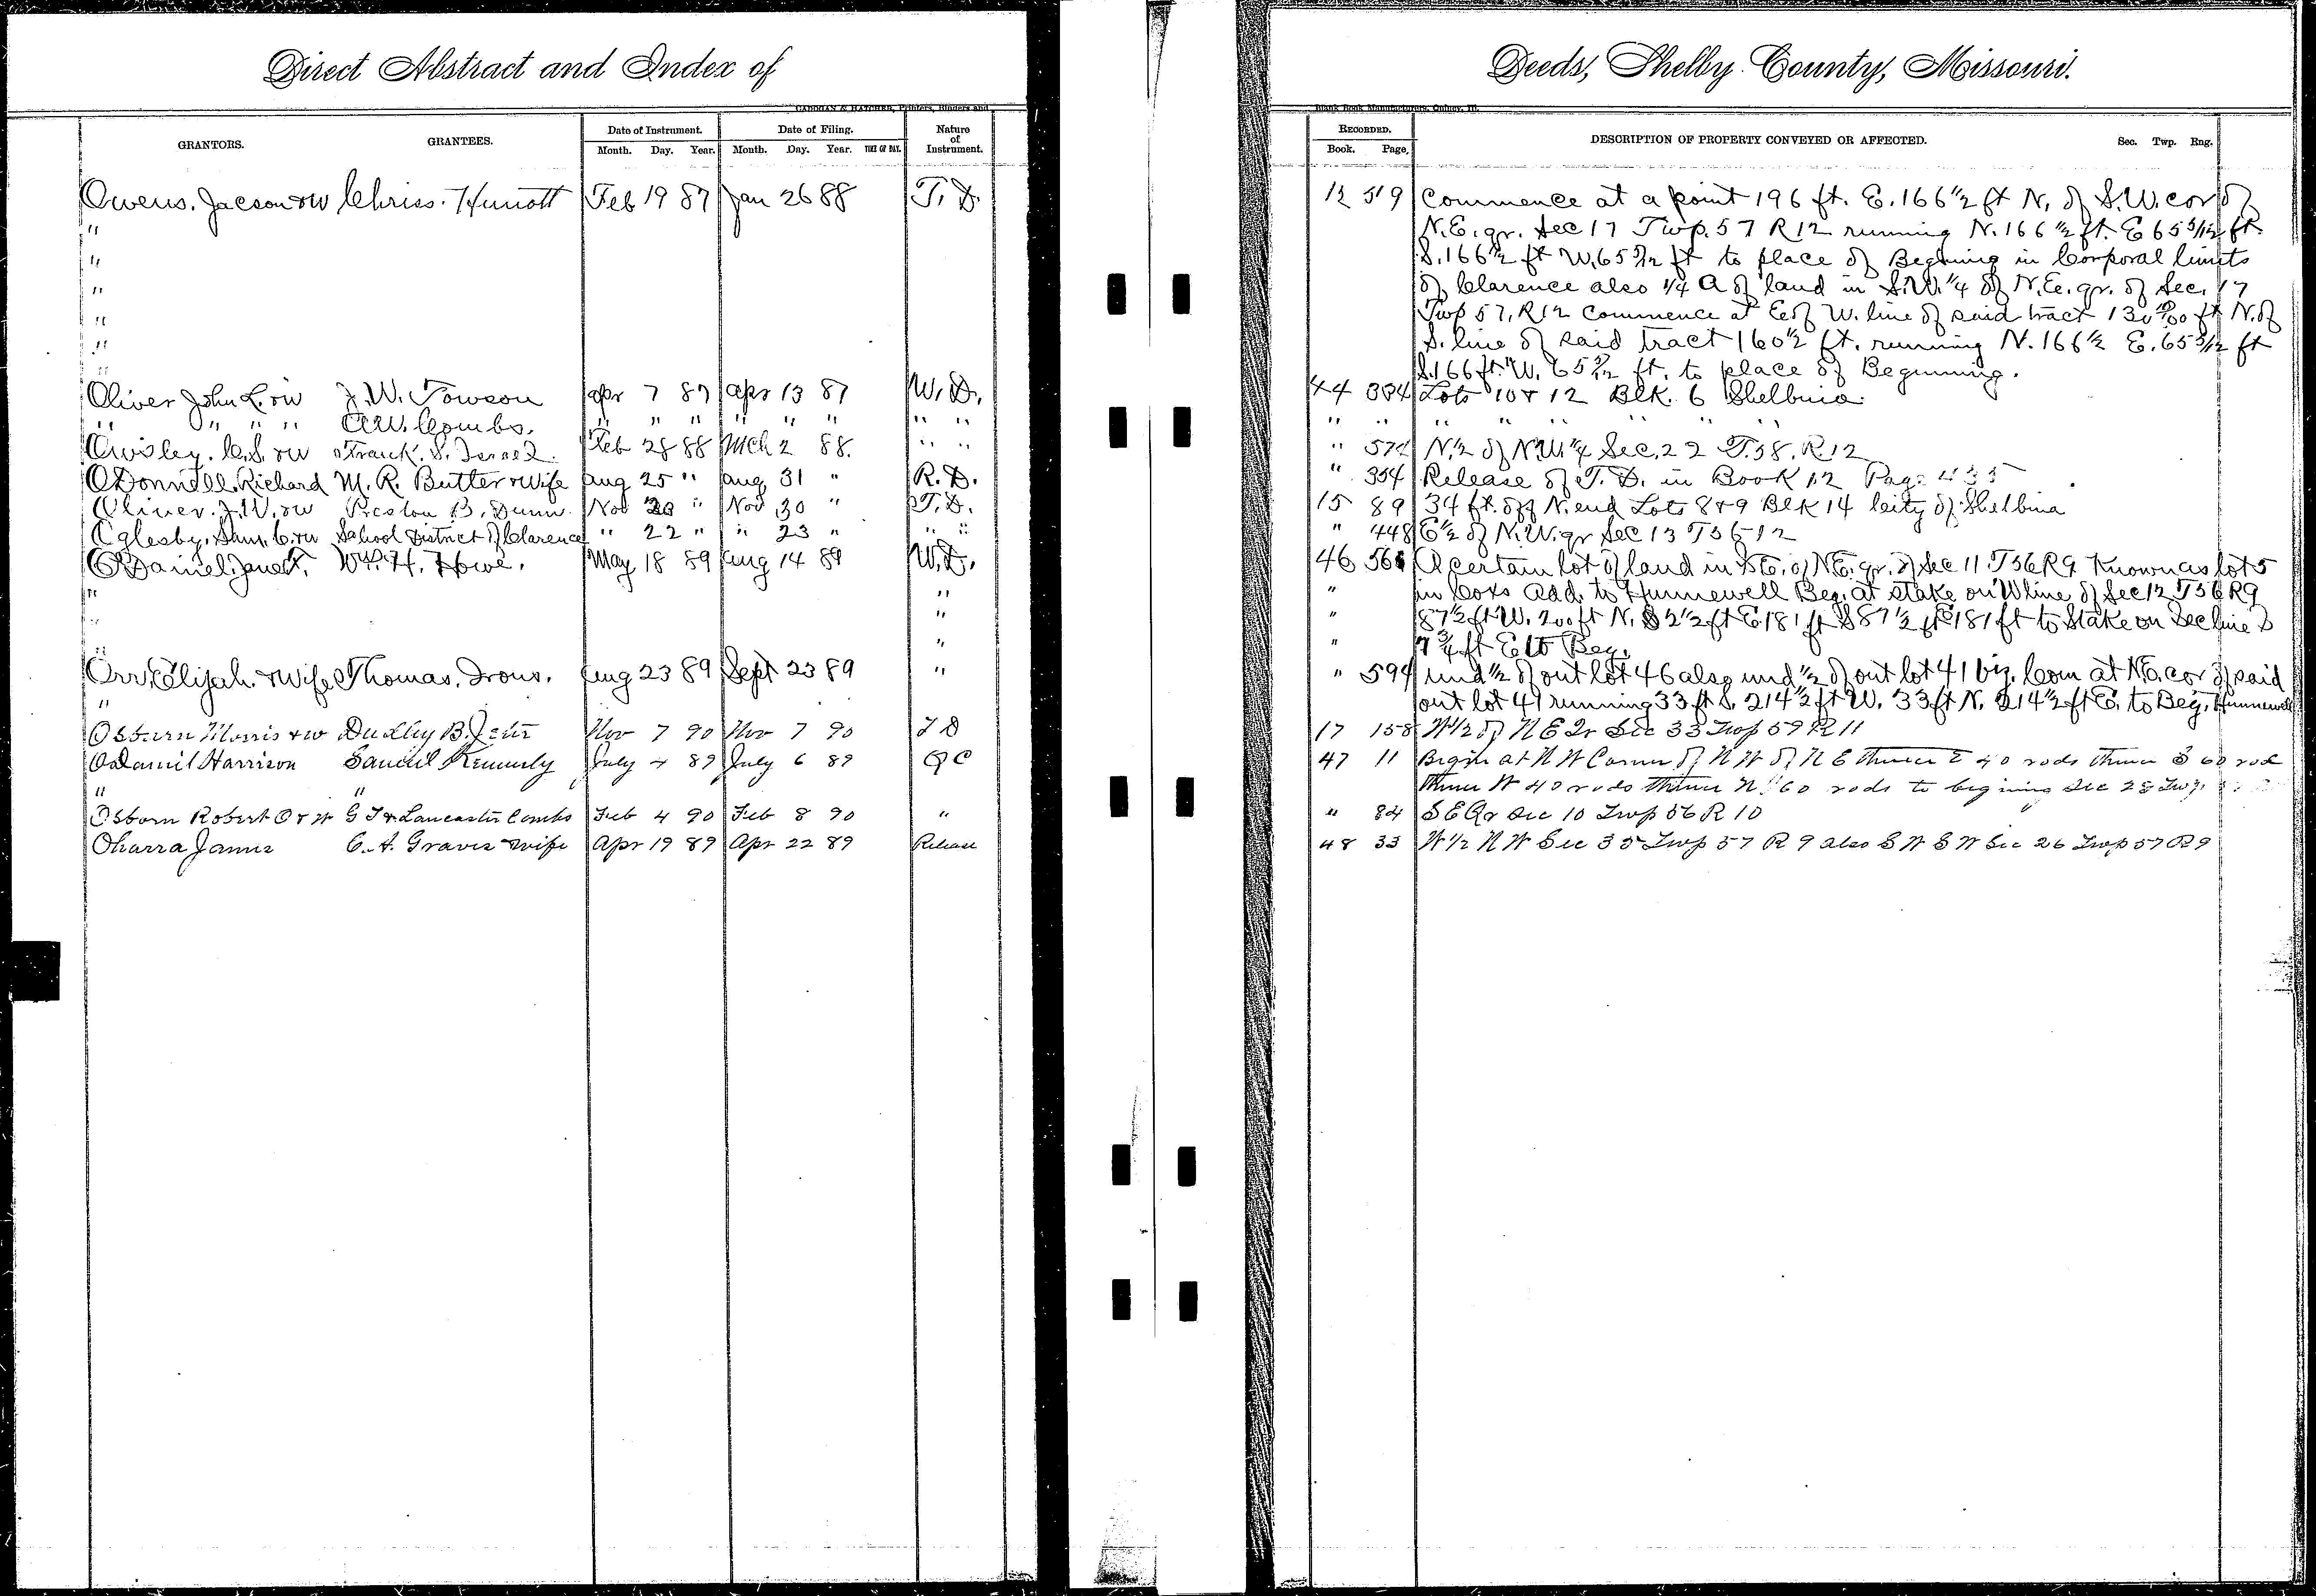 Direct Abstract and Index of
Deeds, Shelby County, Missouri.
CADOGAN & HATCHER, Printers, Binders and
Blank Book Manufacturers, Quincy, Ill.
GRANTORS. GRANTEES. Date of Instrument. Date of Filing. Nature of Instrument.
Month. Day. Year. Month. Day. Year. TIME OF DAY.
RECORDED. DESCRIPTION OF PROPERTY CONVEYED OR AFFECTED. Sec. Twp. Rng.
Book. Page.
Owens. Jacson & W Chriss. Feb 19 87 Jan 26 88 T. D. 12 519 Commence at a point 196 ft. E. 166 1/2 ft N. of S.W. cor of
" N.E. qr. Sec 17 Twp. 57 R 12 running N. 166 1/2 ft. E 65 5/12 ft.
" S. 166 1/2 ft W. 65 5/12 ft to place of Begining in Corporal limits
" of Clarence also 1/4 A of land in S.W. 1/4 of N.E. qr. of Sec. 17
" Twp 57, R 12 commence at E of W. line of said tract ft N. of
" S. line of said tract 160 1/2 ft. running N. 166 1/2 E. 65 5/12 ft
" S. 166 ft. W. 65 5/12 ft. to place of Beginning.
Oliver John L. & W J. W. Towson Apr 7 87 Apr 13 87 W. D. 44 334 Lots 10 & 12 Blk. 6 Shelbina
" " " " A.W. Combs. " " " " " " " " " " " " " "
Owsley. C. S. & W Frank. S. Israel. Feb 28 88 Mch 2 88. " " " 574 N. 1/2 of N.W. 1/4 Sec. 22 T. 58. R 12
O Donnell. Richard M. R. Butter & Wife Aug 25 " Aug. 31 " R. D. " 354 Release of T. D. in Book 12 Page 435
Oliver. J. W. & W Preston B. Dunn. Nov " Nov 30 " T. D. 15 89 34 ft. off N. end Lots 8 & 9 Blk 14 City of Shelbina
Oglesby. Sam. C. & W School District of Clarence " 22 " " 23 " " " " 448 E 1/2 of N.W. qr Sec 13 T 56 - 12
O Daniel. Jane. Wm. H. Howe. May 18 89 Aug 14 89 W. D. 46 A certain lot of land in S E. of N E. qr. of Sec 11 T 56 R 9 Known as lot 5
" " " in Coxs Add. to Hunnewell Beg. at stake on W line of Sec 12 T 56 R 9
" " " 87 1/2 ft W. 200 ft N. ft E 181 ft S 87 1/2 ft E 181 ft to Stake on Sec line S
" " " 7 3/4 ft E to Beg.
Orr. Elijah. & Wife Thomas. Irons. Aug 23 89 Sept 23 89 " " 594 und 1/2 of out lot 46 also und 1/2 of out lot 41 viz. Com at N.E. cor of said
" out lot 41 running 33 ft S. 214 1/2 ft W. 33 ft N. 214 1/2 ft E. to Beg. Hunnewell
Osburn Morris & W Dudley B. Jeter Nov 7 90 Nov 7 90 T D 17 158 W 1/2 of N E Qr Sec 33 Twp 57 R 11
O Daniel Harrison Samuel Kennerly July 4 89 July 6 89 Q C 47 11 Begin at N W Corner of N W of N E thence E 40 rods thence S 60 rod
" thence W 40 rods thence N 60 rods to begining Sec 28 Twp.
Osborn Robert O & W G T & Lancaster Combs Feb 4 90 Feb 8 90 " " 84 S E Qr Sec 10 Twp 56 R 10
Oharra James C. A. Graves & wife Apr 19 89 Apr 22 89 Release 48 33 W 1/2 N W Sec 35 Twp 57 R 9 also S W S W Sec 26 Twp 57 R 9